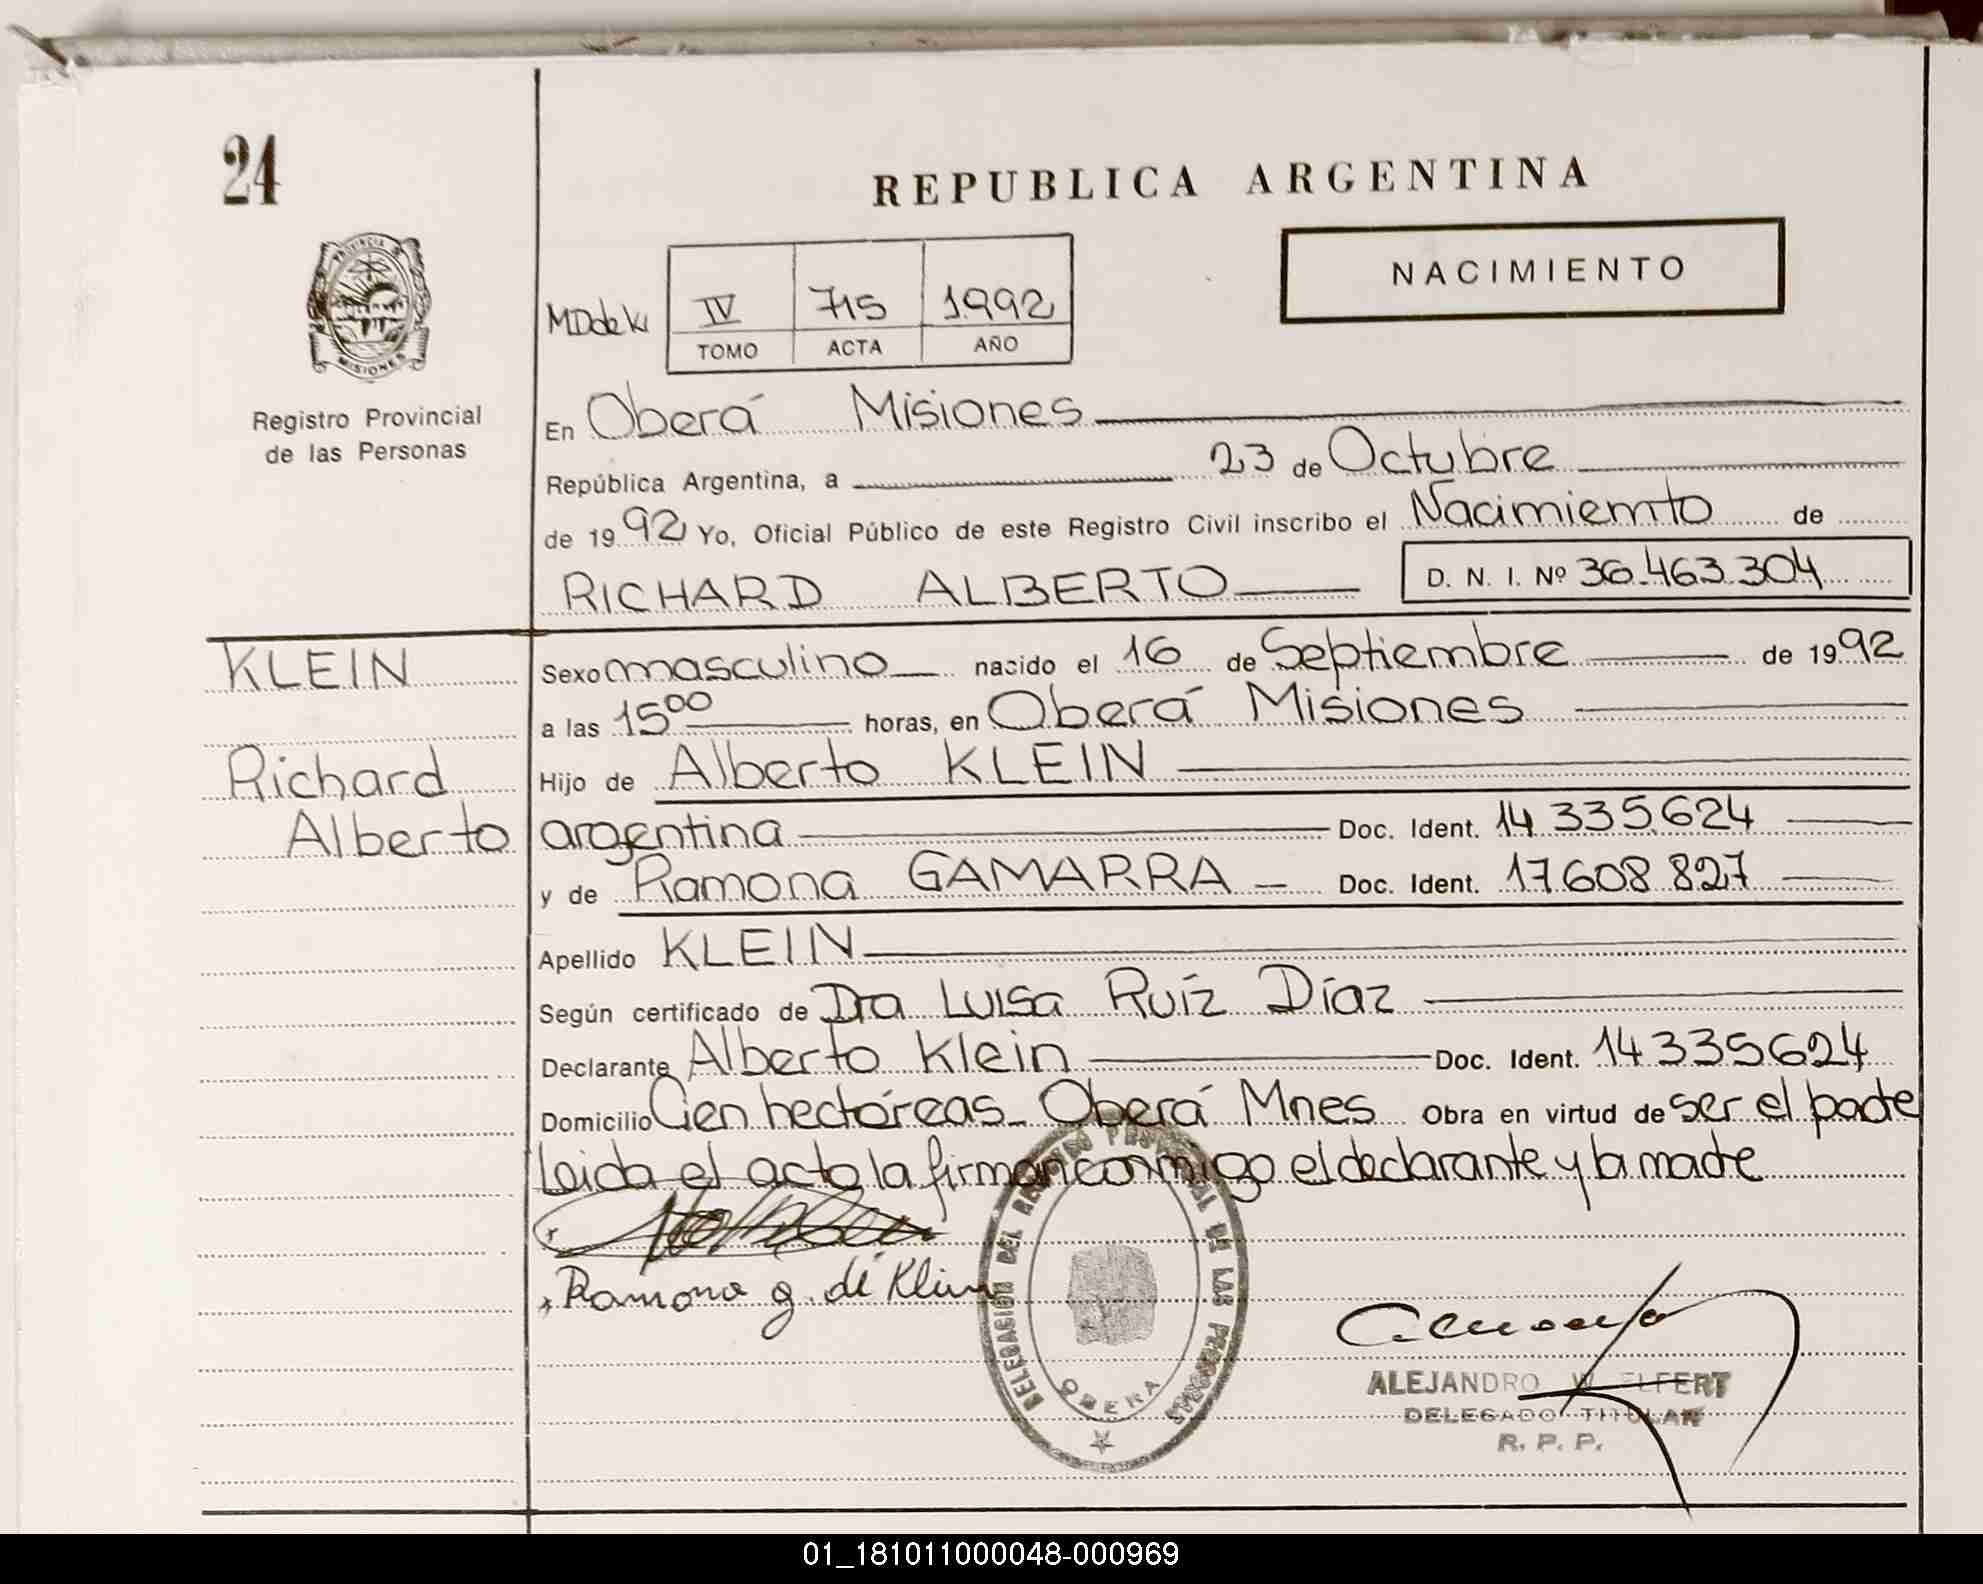 24
REPUBLICA ARGENTINA
NACIMIENTO
PROVINCIA DE
MISIONES
IV 715 1992
TOMO ACTA AÑO
Registro Provincial
de las Personas
En Oberá Misiones
República Argentina, a 23 de Octubre
de 1992 Yo, Oficial Público de este Registro Civil inscribo el Nacimiento de
RICHARD ALBERTO D. N. I. Nº 36.463.304
KLEIN
Richard
Alberto
Sexo masculino nacido el 16 de Septiembre de 1992
a las 15⁰⁰ horas, en Oberá Misiones
Hijo de Alberto KLEIN
argentina Doc. Ident. 14.335.624
y de Ramona GAMARRA Doc. Ident. 17.608.827
Apellido KLEIN
Según certificado de Dra Luisa Ruíz Díaz
Declarante Alberto Klein Doc. Ident. 14.335624
Domicilio Cien hectóreas - Oberá Mnes Obra en virtud de ser el padre
Leida el acto la firman conmigo el declarante y la madre
Ramona g. de Klein
DELEGACION DEL REGISTRO PROVINCIAL DE LAS PERSONAS
OBERA
ALEJANDRO W. ELFERT
DELEGADO TITULAR
R. P. P.
01_181011000048-000969